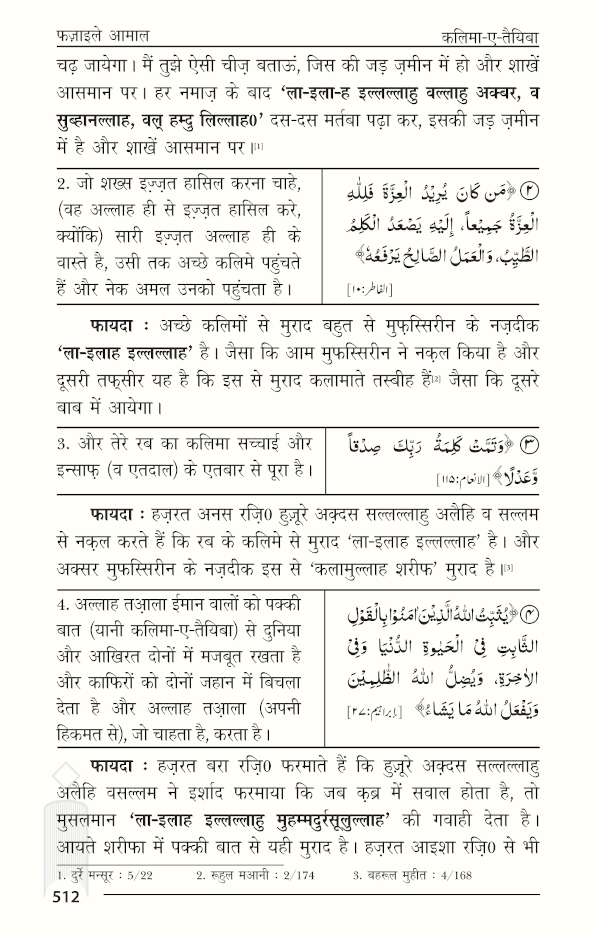 फज़ाइले आमाल
कलिमा-ए-तैयिबा
चढ़ जायेगा। मैं तुझे ऐसी चीज़ बताऊं, जिस की जड़ ज़मीन में हो और शाखें
आसमान पर। हर नमाज़ के बाद ‘ला-इला-ह इल्लल्लाहु वल्लाहु अक्बर, व
सुब्हानल्लाह, वल् हम्दु लिल्लाह0’ दस-दस मर्तबा पढ़ा कर, इसकी जड़ ज़मीन
में है और शाखें आसमान पर।[1]
2. जो शख्स इज़्ज़त हासिल करना चाहे,
(वह अल्लाह ही से इज़्ज़त हासिल करे,
क्योंकि) सारी इज़्ज़त अल्लाह ही के
वास्ते है, उसी तक अच्छे कलिमे पहुंचते
हैं और नेक अमल उनको पहुंचता है।
۲ ﴿مَن كَانَ يُرِيْدُ الْعِزَّةَ فَلِلّٰهِ
الْعِزَّةُ جَمِيْعاً، إِلَيْهِ يَصْعَدُ الْكَلِمُ
الطَّيِّبُ، وَالْعَمَلُ الصَّالِحُ يَرْفَعُهٗ﴾
[الفاطر:۱۰]
फायदा : अच्छे कलिमों से मुराद बहुत से मुफ़स्सिरीन के नज़दीक
‘ला-इलाह इल्लल्लाह’ है। जैसा कि आम मुफस्सिरीन ने नक़ल किया है और
दूसरी तफ्सीर यह है कि इस से मुराद कलामाते तस्बीह हैं[2] जैसा कि दूसरे
बाब में आयेगा।
3. और तेरे रब का कलिमा सच्चाई और
इन्साफ़ (व एतदाल) के एतबार से पूरा है।
۳ ﴿وَتَمَّتْ كَلِمَةُ رَبِّكَ صِدْقاً
وَّعَدْلًا﴾ [الانعام:۱۱۵]
फायदा : हज़रत अनस रज़ि0 हुज़ूरे अक़्दस सल्लल्लाहु अलैहि व सल्लम
से नक़ल करते हैं कि रब के कलिमे से मुराद ‘ला-इलाह इल्लल्लाह’ है। और
अक्सर मुफस्सिरीन के नज़दीक इस से ‘कलामुल्लाह शरीफ’ मुराद है।[3]
4. अल्लाह तआ़ला ईमान वालों को पक्की
बात (यानी कलिमा-ए-तैयिबा) से दुनिया
और आखिरत दोनों में मजबूत रखता है
और काफिरों को दोनों जहान में बिचला
देता है और अल्लाह तआ़ला (अपनी
हिकमत से), जो चाहता है, करता है।
۴ ﴿يُثَبِّتُ اللهُ الَّذِيْنَ اٰمَنُوْا بِالْقَوْلِ
الثَّابِتِ فِيْ الْحَيٰوةِ الدُّنْيَا وَفِيْ
الْاٰخِرَةِ، وَيُضِلُّ اللهُ الظّٰلِمِيْنَ
وَيَفْعَلُ اللهُ مَا يَشَاءُ﴾ [ابراہیم:۲۷]
फायदा : हज़रत बरा रज़ि0 फरमाते हैं कि हुज़ूरे अक़्दस सल्लल्लाहु
अलैहि वसल्लम ने इर्शाद फरमाया कि जब क़ब्र में सवाल होता है, तो
मुसलमान ‘ला-इलाह इल्लल्लाहु मुहम्मदुर्रसूलुल्लाह’ की गवाही देता है।
आयते शरीफा में पक्की बात से यही मुराद है। हज़रत आइशा रज़ि0 से भी
1. दुर्रे मन्सूर : 5/22 2. रूहुल मआनी : 2/174 3. बहरूल मुहीत : 4/168
512